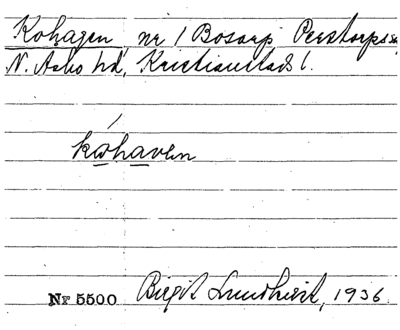 Kohagen, nr 1 Bosarp Perstorps sn,
N. Åsbo hd, Kristianstads l.
kωhavεn
Nr 5500 Birgit Lundkvist, 1936.